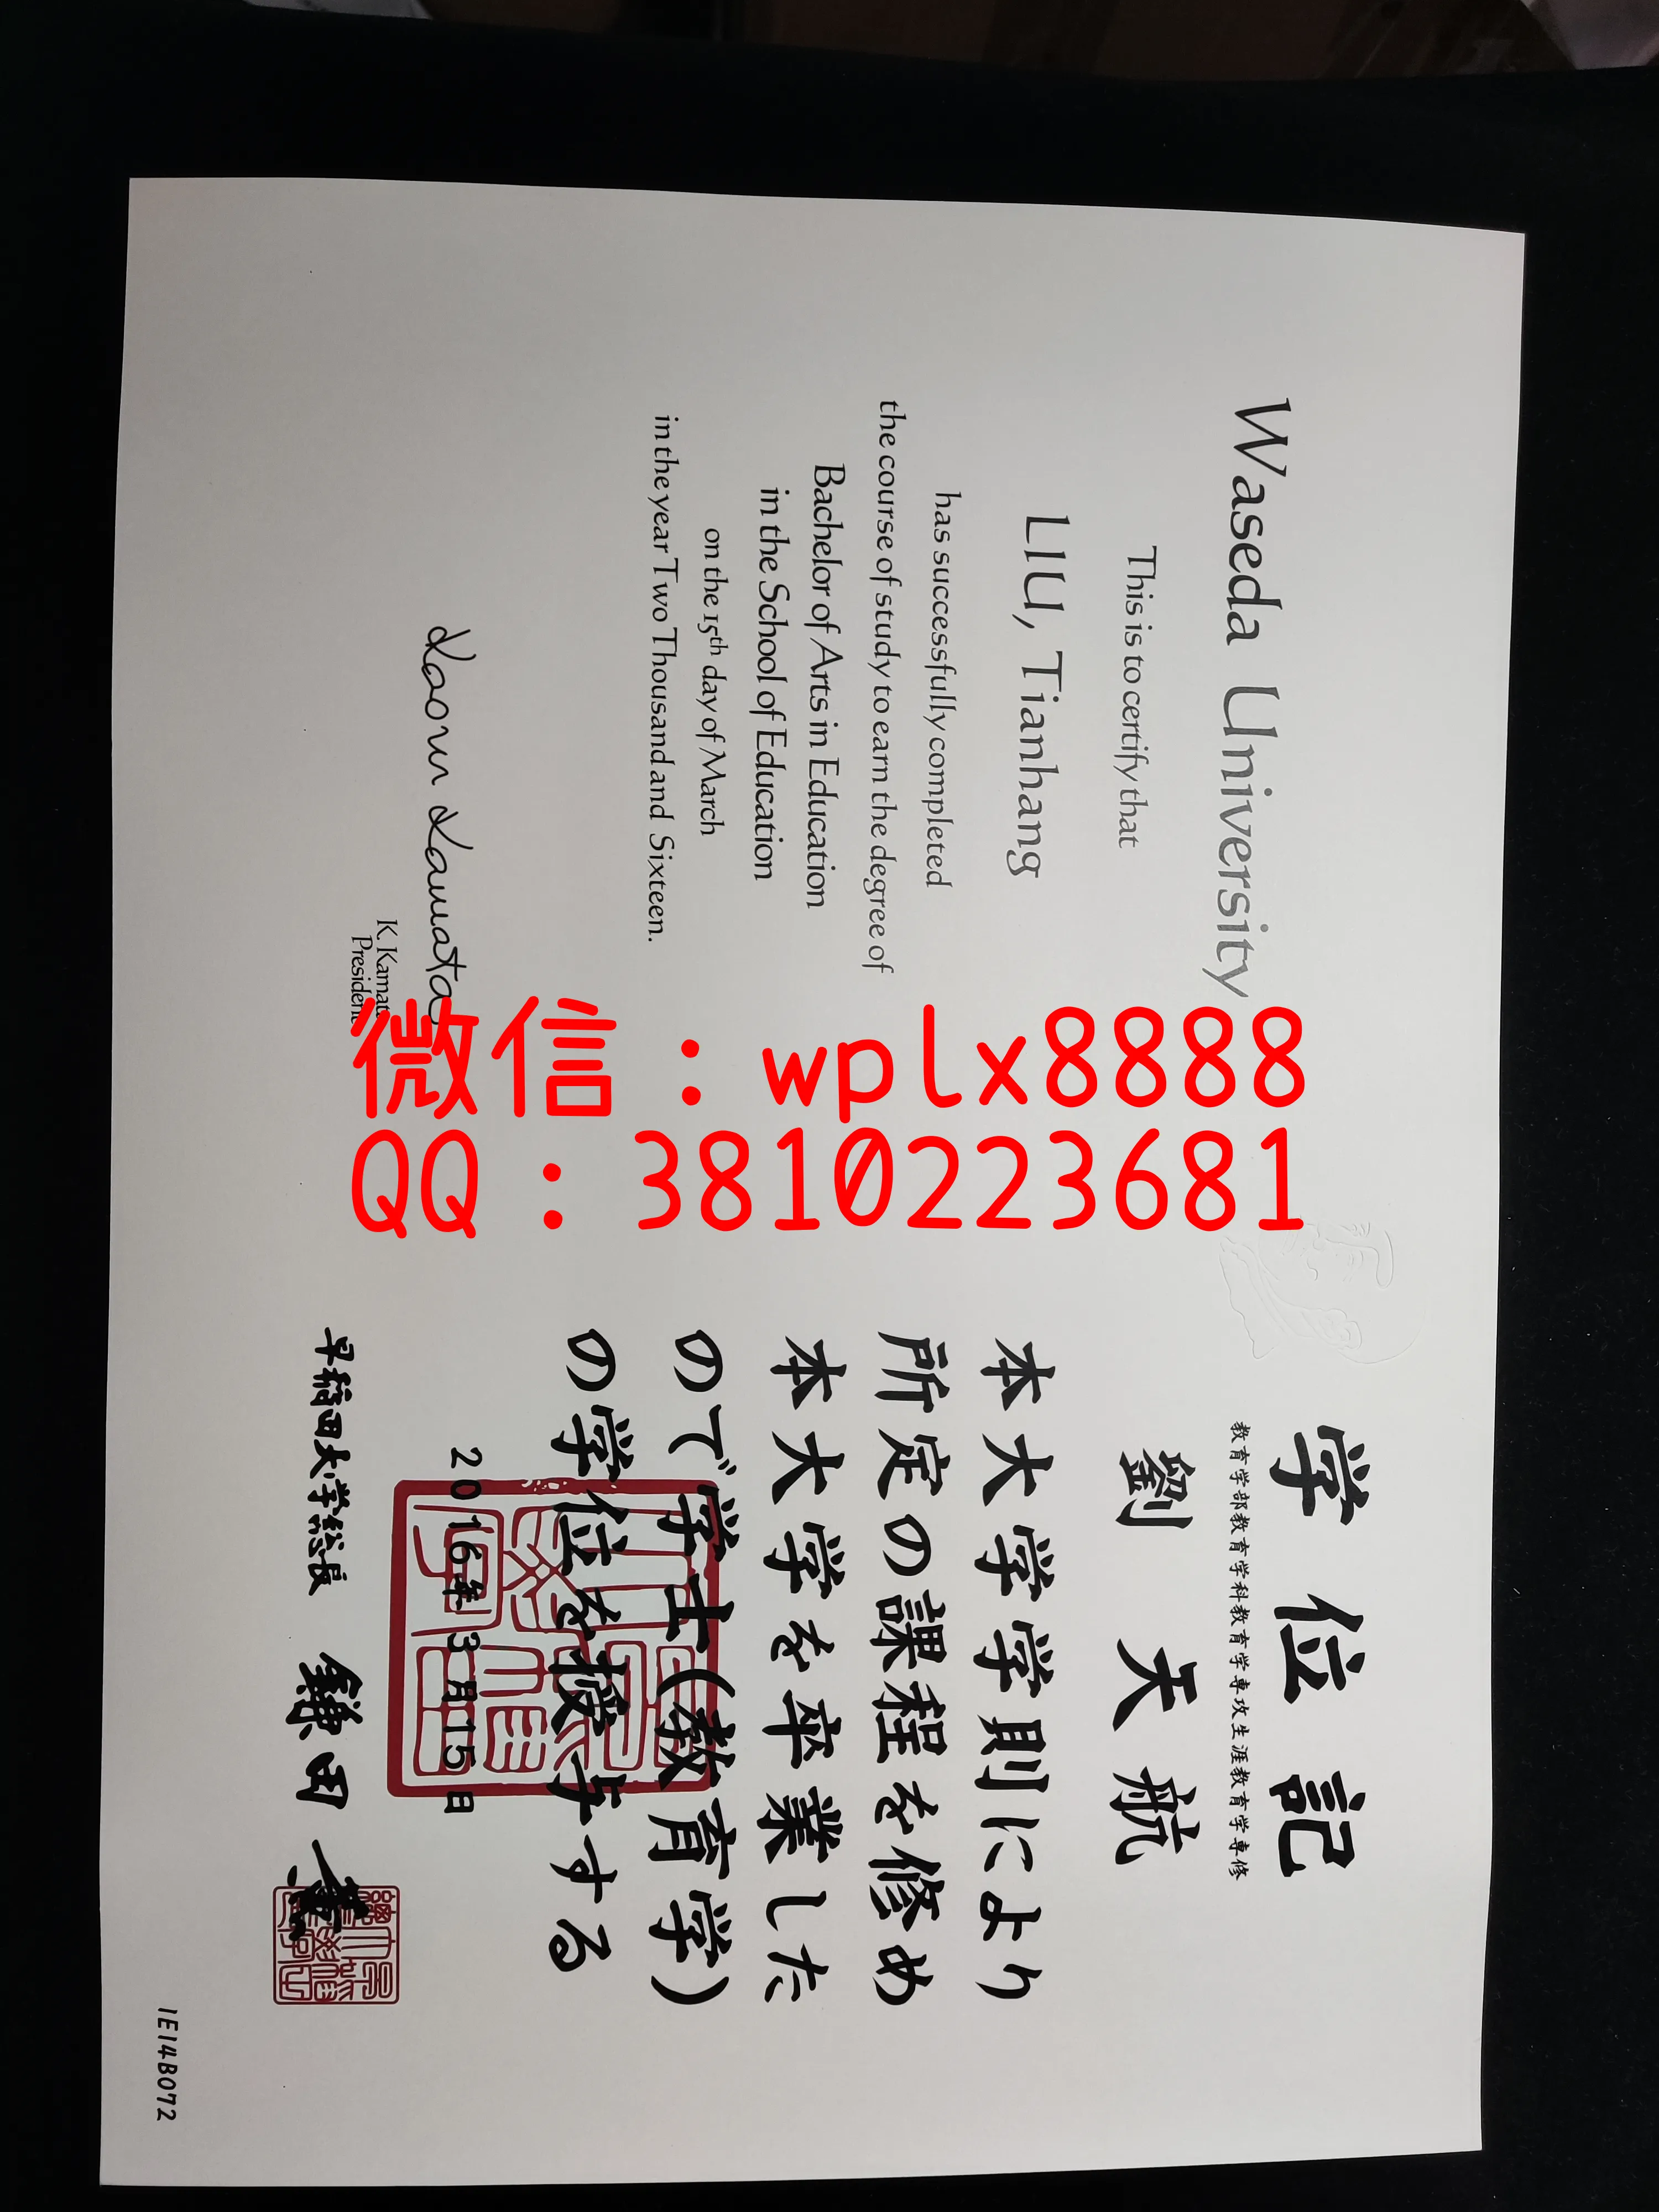 Waseda University
This is to certify that
LIU, Tianhang
has successfully completed
the course of study to earn the degree of
Bachelor of Arts in Education
in the School of Education
on the 15th day of March
in the year Two Thousand and Sixteen.
Kaoru Kamata
K. Kamata
President
微信：wplx8888
QQ：3810223681
学位記
教育学部教育学科教育学専攻生涯教育学専修
劉天航
本大学学則により
所定の課程を修め
本大学を卒業した
ので学士(教育学)
の学位を授与する
2016年3月15日
早稲田大学総長 鎌田薫
1E14B072